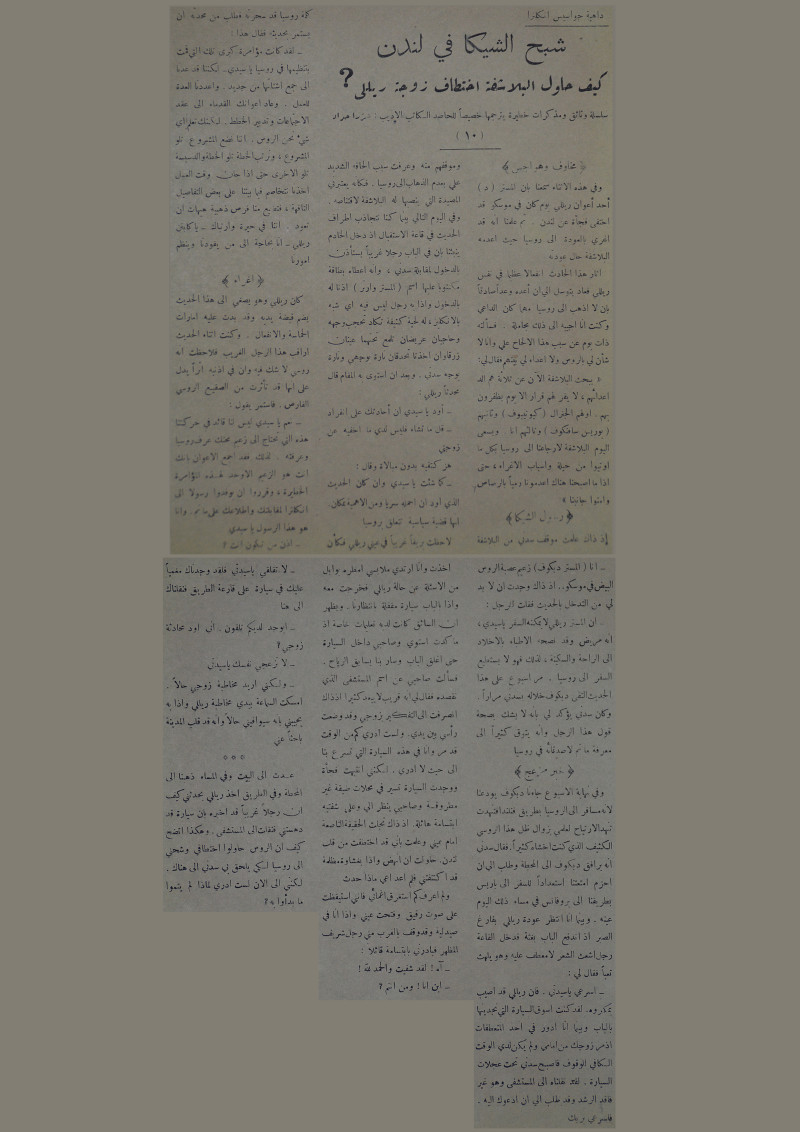 داهية جواسيس انكلترا
شبح الشيكا في لندن
كيف حاول البلاشفة اختطاف زوجة ريللي ؟
سلسلة وثائق ومذكرات خطيرة يترجمها خصيصاً للحاصد الكاتب الاديب :
( ١٠ )
﴿ مخاوف وهواجس ﴾
وفي هذه الاثناء سمعنا بان المستر ( د )
أحد أعوان ريللي يوم كان في موسكو قد
اختفى فجأة عن لندن . ثم علمنا انه قد
اغري بالعودة الى روسيا حيث اعدمه
البلاشفة حال عودته
اثار هذا الحادث انفعالا عظيما في نفس
ريللي فعاد يتوسل الي ان أعده وعداً صادقاً
بان لا اذهب الى روسيا مهما كان الداعي
وكنت انا اجيبه الى ذلك مجاملة . فسألته
ذات يوم عن سبب هذا الالحاح علي وانا لا
شأن لي بالروس ولا اعداء لي بينهم فقال لي :
« يبحث البلاشفة الآن عن ثلاثة هم الد
اعدائهم ، لا يقر لهم قرار الا يوم يظفرون
بهم . اولهم الجنرال ( كوتيبوف ) وثانيهم
( بوريس سافنكوف ) وثالثهم انا . ويسعى
اليوم البلاشفة لارجاعنا الى روسيا بكل ما
اوتوا من حيلة واسباب الاغراء ، حتى
اذا ما اصبحنا هناك اعدمونا رمياً بالرصاص
وامنوا جانبنا »
﴿ رسول الشيكا ﴾
إذ ذاك علمت موقف سدني من البلاشفة
وموقفهم منه وعرفت سبب الحافه الشديد
علي بعدم الذهاب الى روسيا . فكأنه يعتبرني
المصيدة التي ينصبها له البلاشفة لاقتناصه .
وفي اليوم التالي بينما كنا نتجاذب اطراف
الحديث في قاعة الاستقبال اذ دخل الخادم
ينبئنا بان في الباب رجلا غريباً يستأذن
بالدخول لمقابلة سدني ، وانه اعطاه بطاقة
مكتوبا عليها اسم ( المستر وارنر ) اذنا له
بالدخول واذا به رجل ليس فيه اي شبه
بالانكليز ، له لحية كثيفة تكاد تحجب وجهه
وحاجبان عريضان تلمع تحتهما عينان
زرقاوان اخذتا تحدقان تارة بوجهي وتارة
بوجه سدني . وبعد ان استوى به المقام قال
محدثاً ريللي :
ـ أود يا سيدي ان أحادثك على انفراد
ـ قل ما تشاء فليس لدي ما اخفيه عن
زوجتي
هز كتفيه بدون مبالاة وقال :
ـ كما شئت يا سيدي وان كان الحديث
الذي أود ان احمله سريا ومن الاهمية بمكان .
انها قضية سياسية تتعلق بروسيا
لاحظت بريقاً غريباً في عيني ريللي فكأن
كلمة روسيا قد سحرته فطلب من محدثه ان
يستمر بحديثه فقال هذا :
ـ لقد كانت مؤامرة كبرى تلك التي قمت
بتنظيمها في روسيا يا سيدي . لكننا قد عدنا
الى جمع اشتاتها من جديد . واعددنا العدة
للعمل . وعاد اعوانك القدماء الى عقد
الاجتماعات وتدبير الخطط . لكنك تعلم اي
شيء نحن الروس . اننا نضع المشروع تلو
المشروع ، ونرتب الخطة تلو الخطة والدسيسة
تلو الاخرى حتى اذا حان وقت العمل
اخذنا نتخاصم فيما بيننا على بعض التفاصيل
التافهة ، فتضيع منا فرص ذهبية هيهات ان
تعود . اننا في حيرة وارتباك ـ يا كابتن
ريللي ـ انا بحاجة الى من يقودنا وينظم
امورنا
﴿ اغراء ﴾
كان ريللي وهو يصغي الى هذا الحديث
يضم قبضة يديه وقد بدت عليه امارات
الحماسة والانفعال . وكنت اثناء الحديث
اراقب هذا الرجل الغريب فلاحظت انه
روسي لا شك فيه وان في اذنيه أثراً يدل
على انها قد تأثرت من الصقيع الروسي
القارص . فاستمر يقول :
ـ نعم يا سيدي ليس لنا قائد في حركتنا
هذه التي تحتاج الى زعيم محنك عرف روسيا
وعرفته . لذلك فقد اجمع الاعوان بانك
انت هو الزعيم الاوحد لهذه المؤامرة
الخطيرة ، وقرروا ان يوفدوا رسولا الى
انكلترا لمفاتحتك واطلاعك على ما تم . وانا
هو هذا الرسول يا سيدي
ـ اذن من تكون انت ؟
ـ انا ( المستر دبكوف ) زعيم عصبة الروس
البيض في موسكو . اذ ذاك وجدت ان لا بد
لي من التدخل بالحديث فقلت للرجل :
ـ ان المستر ريللي لا يمكنه السفر يا سيدي ،
انه مريض وقد نصحه الاطباء بالاخلاد
الى الراحة والسكينة ، لذلك فهو لا يستطيع
السفر الى روسيا . مر اسبوع على هذا
الحديث التقى دبكوف خلاله بسدني مراراً .
وكان سدني يؤكد لي بانه لا يشك بصحة
قول هذا الرجل وأنه يتوق كثيراً الى
معرفة ما تم لاصدقائه في روسيا
﴿ خبر مزعج ﴾
وفي نهاية الاسبوع جاءنا دبكوف يودعنا
لانه مسافر الى روسيا بطريق فنلندا فتنهدت
تنهد الارتياح لعلمي بزوال ظل هذا الروسي
الكثيف الذي كنت اخشاه كثيراً . فقال سدني
انه يرافق دبكوف الى المحطة وطلب الي ان
احزم امتعتنا استعداداً للسفر الى باريس
بطريقنا الى بروفانس في مساء ذلك اليوم
عينه . وبينما انا انتظر عودة ريللي بفارغ
الصبر اذ اندفع الباب بغتة فدخل القاعة
رجل اشعث الشعر لا معطف عليه وهو يلهث
تعباً فقال لي :
ـ اسرعي يا سيدتي . فان ريللي قد اصيب
بمكروه . لقد كنت اسوق السيارة التي تجدينها
بالباب وبينما انا أدور في احد المنعطفات
اذ مر زوجك من امامي ولم يكن لدي الوقت
الكافي للوقوف فاصبح سدني تحت عجلات
السيارة . لقد نقلناه الى المستشفى وهو غير
فاقد الرشد وقد طلب الي ان ادعوك اليه .
فاسرعي بربك
اخذت وانا ارتدي ملابسي امطره بوابل
من الاسئلة عن حالة ريللي فخرجت معه
واذا بالباب سيارة مقفلة بانتظارنا . ويظهر
ان السائق كانت لديه تعليمات خاصة اذ
ما كدت استوي وصاحبي داخل السيارة
حتى اغلق الباب وسار بنا يسابق الرياح .
فسألت صاحبي عن اسم المستشفى الذي
نقصده فقال لي انه قريب لا يبعد كثيرا اذ ذاك
انصرفت الى التفكير بزوجي وقد وضعت
رأسي بين يدي . ولست ادري كم من الوقت
قد مر وانا في هذه السيارة التي تسرع بنا
الى حيث لا ادري . لكنني انتبهت فجأة
ووجدت السيارة تسير في محلات ضيقة غير
مطروقة وصاحبي ينظر الي وعلى شفتيه
ابتسامة هائلة . اذ ذاك تجلت الحقيقة الناصعة
امام عيني وعلمت بأني قد اختطفت من قلب
لندن . حاولت ان انهض واذا بغشاوة مظلمة
قد اكتنفتني فلم اعد اعي ماذا حدث
ولم اعرف كم استغرق اغمائي فانني استيقظت
على صوت رقيق وفتحت عيني واذا انا في
صيدلية وقد وقف بالقرب مني رجل شريف
المظهر فبادرني بابتسامة قائلا :
ـ آه ! لقد شفيت والحمد لله !
ـ اين انا ! ومن انتم ؟
ـ لا تقلقي يا سيدتي فلقد وجدناك مغمياً
عليك في سيارة على قارعة الطريق فنقلناك
الى هنا
ـ أيوجد لديكم تلفون . اني أود محادثة
زوجي ؟
ـ لا تزعجي نفسك يا سيدتي
ـ ولكنني اريد مخاطبة زوجي حالاً .
امسكت السماعة بيدي مخاطبة ريللي واذا به
يجيبني بانه سيوافيني حالاً وأنه قد قلب المدينة
باحثاً عني
* * *
عدت الى البيت وفي المساء ذهبنا الى
المحطة وفي الطريق اخذ ريللي يحدثني كيف
ان رجلاً غريباً قد اخبره بأن سيارة قد
دهستني فنقلت الى المستشفى . وهكذا اتضح
كيف ان الروس حاولوا اختطافي وشحني
الى روسيا لكي يلحق بي سدني الى هناك .
لكنني الى الآن لست أدري لماذا لم يتموا
ما بدأوا به ؟